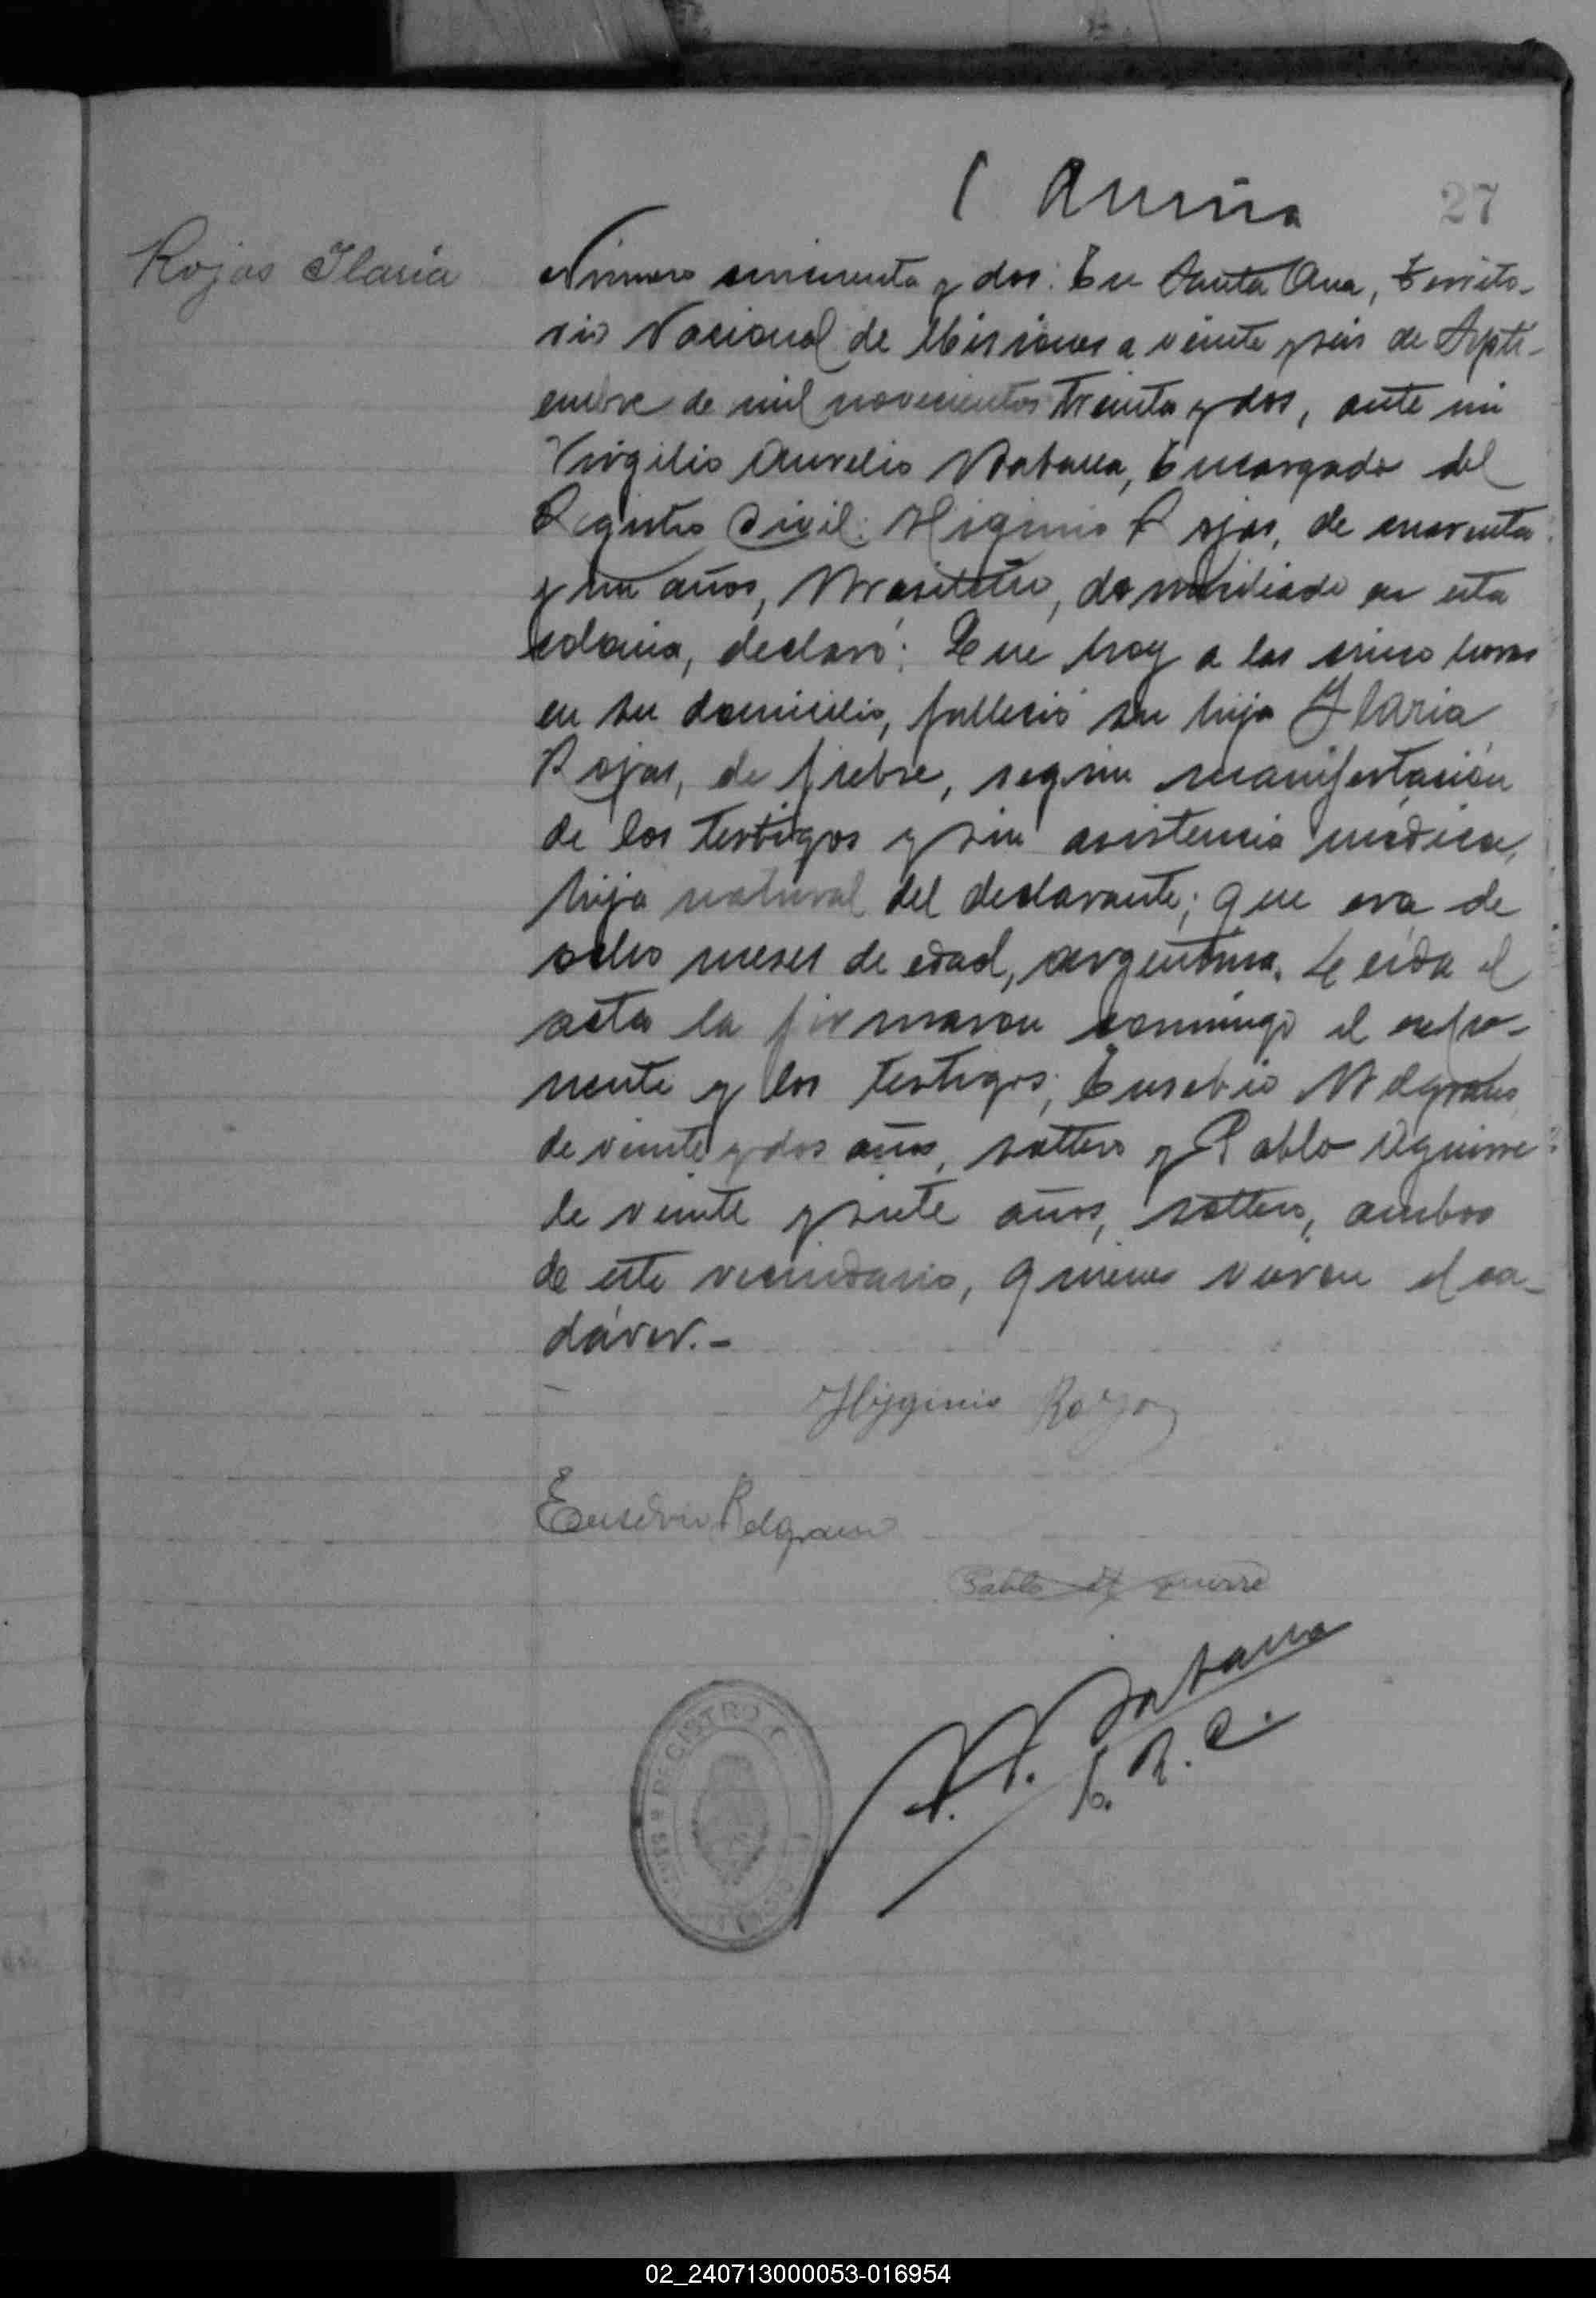 27
Rojas Ilaria
Número cincuenta y dos: En Santa Ana, Territo-
rio Nacional de Misiones a veinte y seis de Septi-
embre de mil novecientos treinta y dos, ante mi
Virgilio Aurelio Encargado del
Registro Civil: Higinio Rojas, de cuarenta
y un años, Brasileño, domiciliado en esta
colonia, declaró: Que hoy a las cinco horas
en su domicilio, falleció su hija Ilaria
Rojas, de fiebre, según manifestación
de los testigos y sin asistencia médica,
hija natural del declarante; que era de
ocho meses de edad, argentina. Leída el
acta la firmaron conmigo el expo-
nente y los testigos; Eusebio Belgrano
de veinte y dos años, soltero y Pablo Aguirre
de veinte y siete años, soltero, ambos
de este vecindario, quienes vieron el ca-
dáver.-
Higginio Rojas
Eusevio Belgrano
Pablo Aguirre
E. R. C.
REGISTRO
02_240713000053-016954